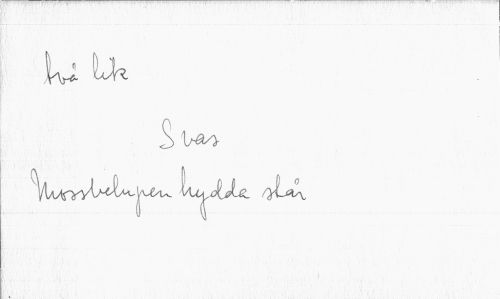 två lik
Svas
Mossbelupen hydda står